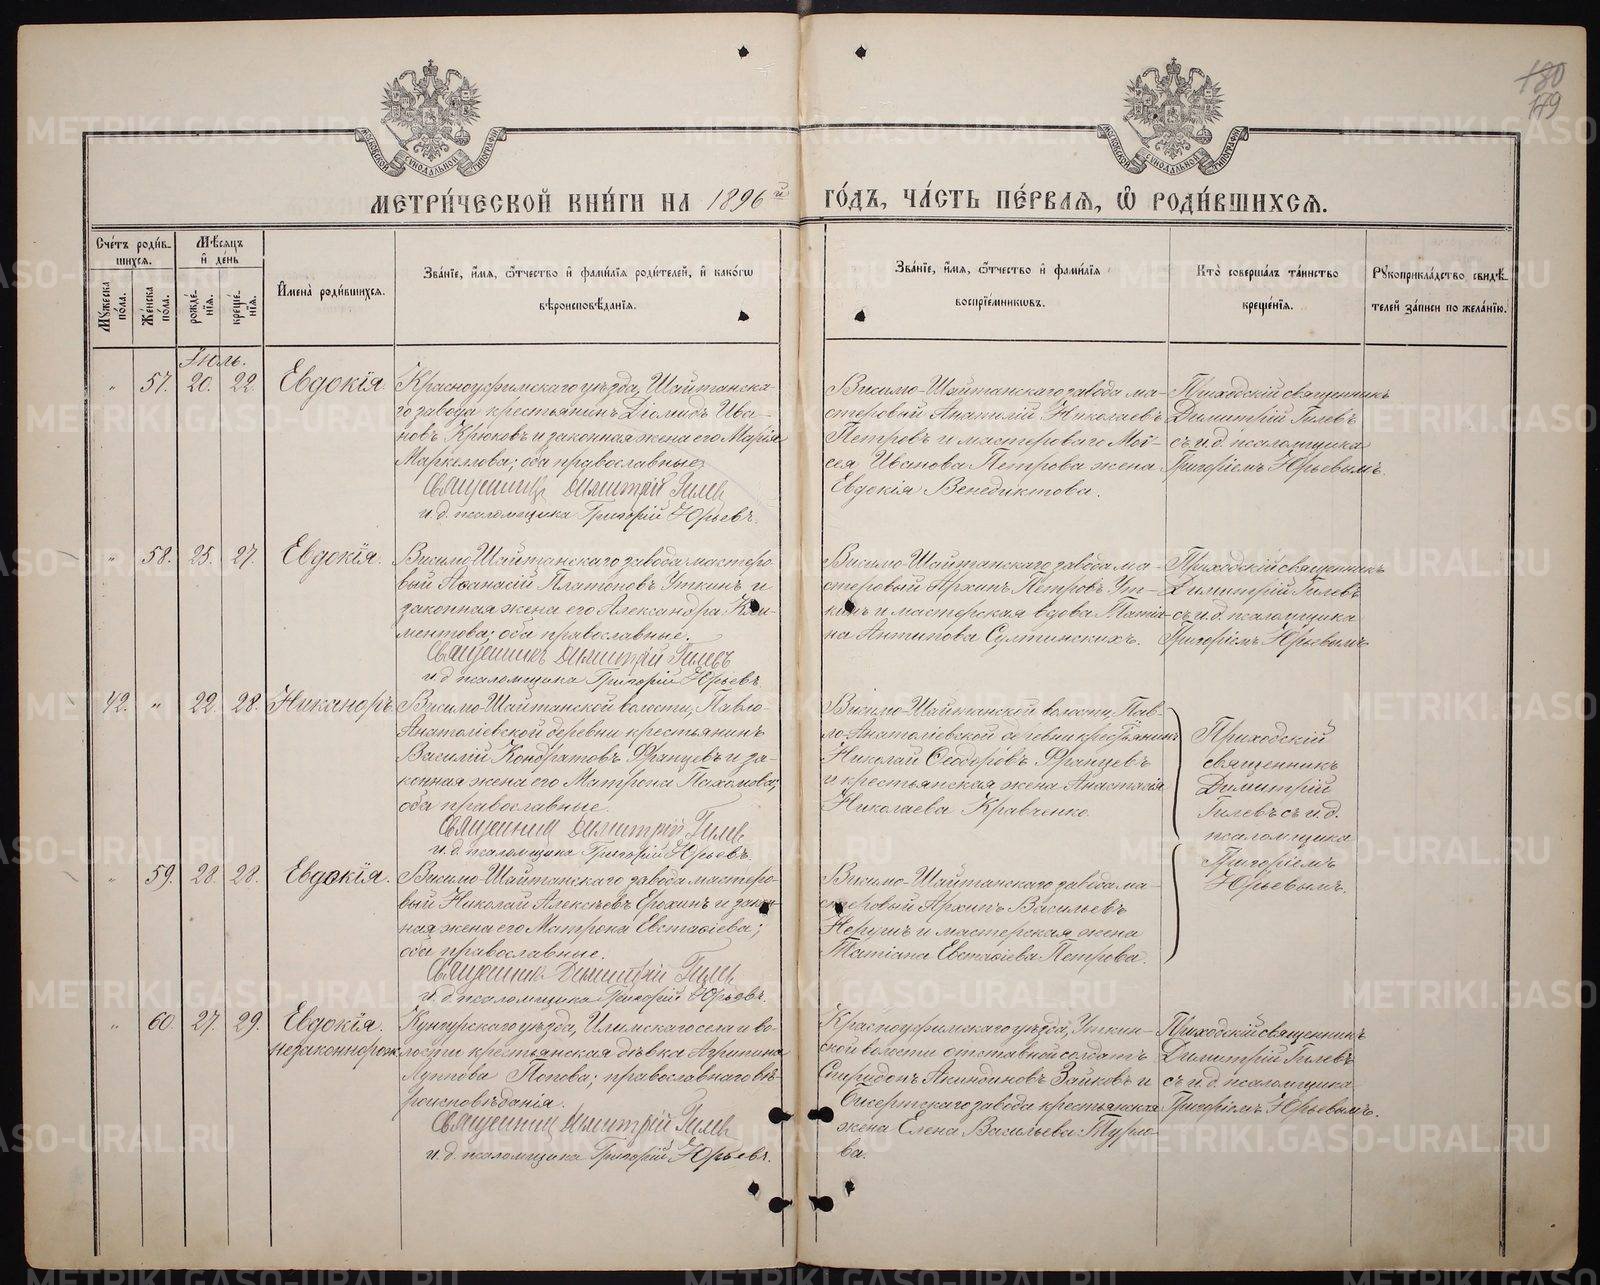 180
179
МОСКОВСКОЙ СѴНОДАЛЬНОЙ ТИПОГРАФІИ
МОСКОВСКОЙ СѴНОДАЛЬНОЙ ТИПОГРАФІИ
МЕТРИ́ЧЕСКОЙ КНИ́ГИ НА 1896й ГО́ДЪ, ЧА́СТЬ ПЕ́РВАЯ, Ѽ РОДИ́ВШИХСЯ.
Сче́тъ роди́в-
шихся.
Мꙋжеска по́ла.
Же́нска по́ла.
Мѣ́сяцъ
и҆ де́нь
рожде́-
нїя.
креще́-
нїя.
И҆мена̀ роди́вшихся.
Зва́нїе, и҆́мя, ѻ҆́тчество и҆ фами́лїя роди́телей, и҆ како́гѡ
вѣроисповѣ́данїя.
Зва́нїе, и҆́мя, ѻ҆́тчество и҆ фами́лїя
воспрїе́мниковъ.
Кто̀ соверша́лъ та́инство
креще́нїя.
Рꙋкоприкла́дство свидѣ́-
телей за́писи по жела́нїю.
Іюль.
" 57. 20. 22. Евдокія.
Красноуфимскаго уѣзда, Шайтанска-
го завода крестьянинъ Діомидъ Ива-
новъ Крюковъ и законная жена его Марія
Маркеллова; оба православные.
Священникъ Димитрій Гилевъ
и. д. псаломщика Григорій Юрьевъ.
Висимо-Шайтанскаго завода ма-
стеровый Анатолій Николаевъ
Петровъ и мастероваго Мои-
сея Иванова Петрова жена
Евдокія Венедиктова.
Приходскій священникъ
Димитрій Гилевъ
съ и. д. псаломщика
Григоріемъ Юрьевымъ.
" 58. 25. 27. Евдокія.
Висимо-Шайтанскаго завода мастеро-
вый Аѳанасій Платоновъ Уткинъ и
законная жена его Александра Кли-
ментова; оба православные.
Священникъ Димитрій Гилевъ
и. д. псаломщика Григорій Юрьевъ
Висимо-Шайтанскаго завода ма-
стеровый Архипъ Петровъ Ут-
кинъ и мастерская вдова Татіа-
на Антипова Султинскихъ.
Приходскій священникъ
Димитрій Гилевъ
съ и. д. псаломщика
Григоріемъ Юрьевымъ
42. " 22. 28. Никаноръ
Висимо-Шайтанской волости, Павло-
Анатоліевской деревни крестьянинъ
Василій Кондратовъ Францевъ и за-
конная жена его Матрона Пахомова;
оба православные.
Священникъ Димитрій Гилевъ
и. д. псаломщика Григорій Юрьевъ.
Висимо-Шайтанской волости, Пав-
ло-Анатоліевской деревни крестьянинъ
Николай Ѳеодоровъ Францевъ
и крестьянская жена Анастасія
Николаева Кравченко.
Приходскій
священникъ
Димитрій
Гилевъ съ и. д.
псаломщика
Григоріемъ
Юрьевымъ.
" 59. 28. 28. Евдокія.
Висимо-Шайтанскаго завода мастеро-
вый Николай Алексѣевъ Ерохинъ и закон-
ная жена его Матрона Евстафіева;
оба православные.
Священникъ Димитрій Гилевъ
и. д. псаломщика Григорій Юрьевъ.
Висимо-Шайтанскаго завода ма-
стеровый Архипъ Васильевъ
и мастерская жена
Татіана Евстафіева Петрова.
" 60. 27. 29. Евдокія.
незаконнорож.
Кунгурскаго уѣзда, Илимскаго села и во-
лости крестьянская дѣвка Агрипина
Луппова Попова; православнаго вѣ-
роисповѣданія.
Священникъ Димитрій Гилевъ
и. д. псаломщика Григорій Юрьевъ.
Красноуфимскаго уѣзда, Уткин-
ской волости отставной солдатъ
Спиридонъ Акиндиновъ Зайковъ и
Бисертскаго завода крестьянская
жена Елена Васильева Турло-
ва.
Приходскій священникъ
Димитрій Гилевъ
съ и. д. псаломщика
Григоріемъ Юрьевымъ.
METRIKI.GASO-URAL.RU